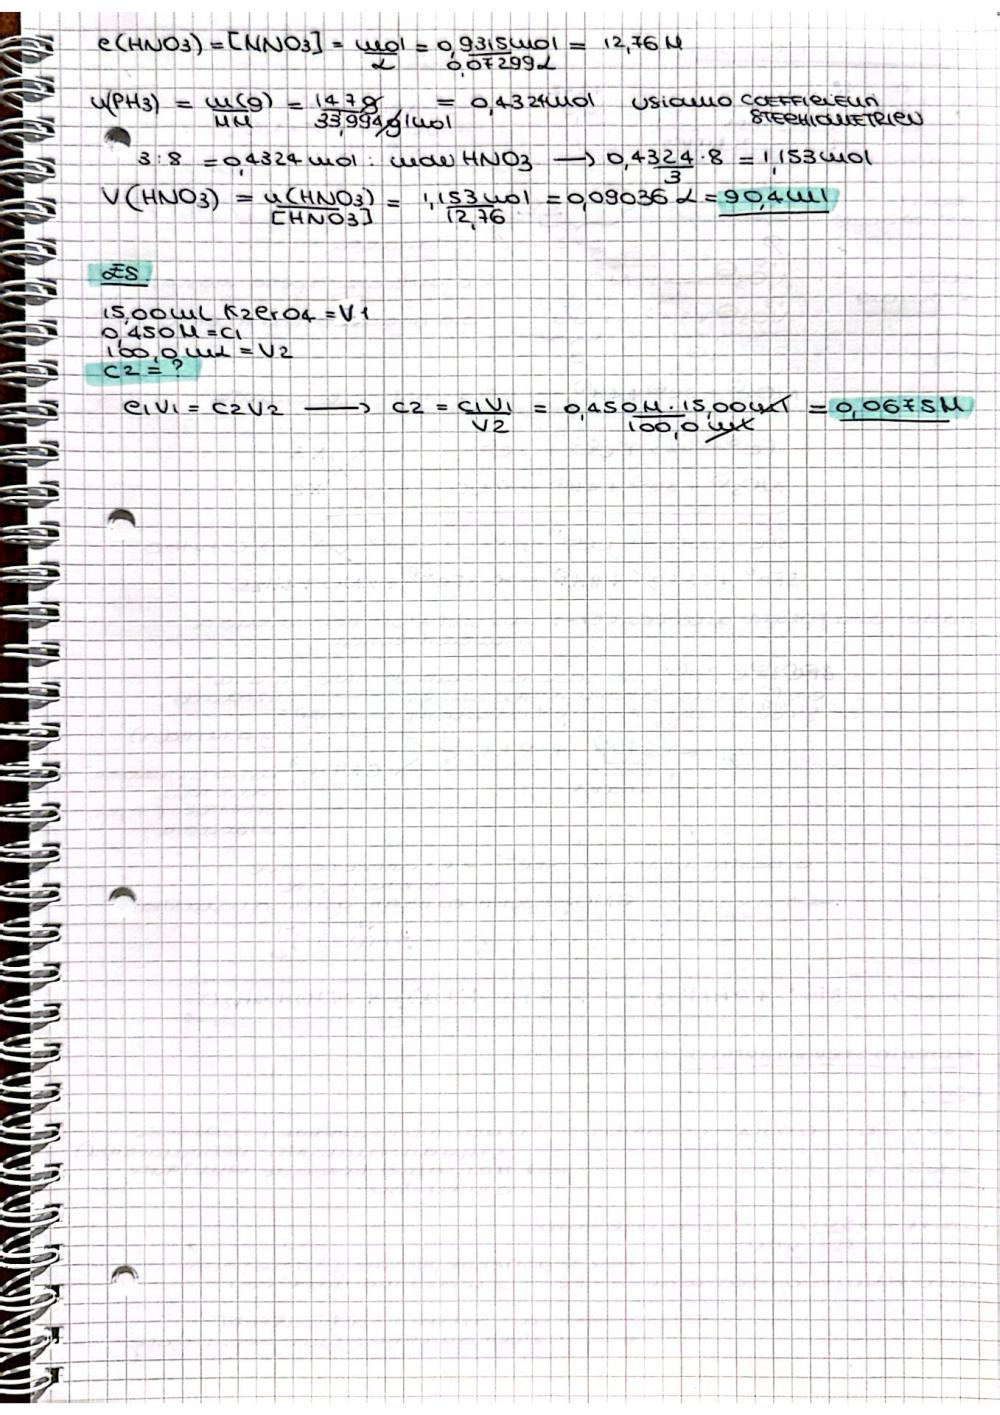 c(HNO3) = [HNO3] = mol/L = 0,9315mol/0,07299L = 12,76 M
n(PH3) = m(g)/MM = 14,7g/33,994g/mol = 0,4324mol usiamo COEFFICIENTI
STECHIOMETRICI
3:8 = 0,4324 mol : mol HNO3 → 0,4324·8/3 = 1,153mol
V(HNO3) = n(HNO3)/[HNO3] = 1,153mol/12,76 = 0,09036 L = 90,4ml
ES.
15,00mL K2CrO4 = V1
0,450M = C1
100,0 mL = V2
C2 = ?
C1V1 = C2V2 → C2 = C1V1/V2 = 0,450M·15,00mL/100,0 mL = 0,0675M